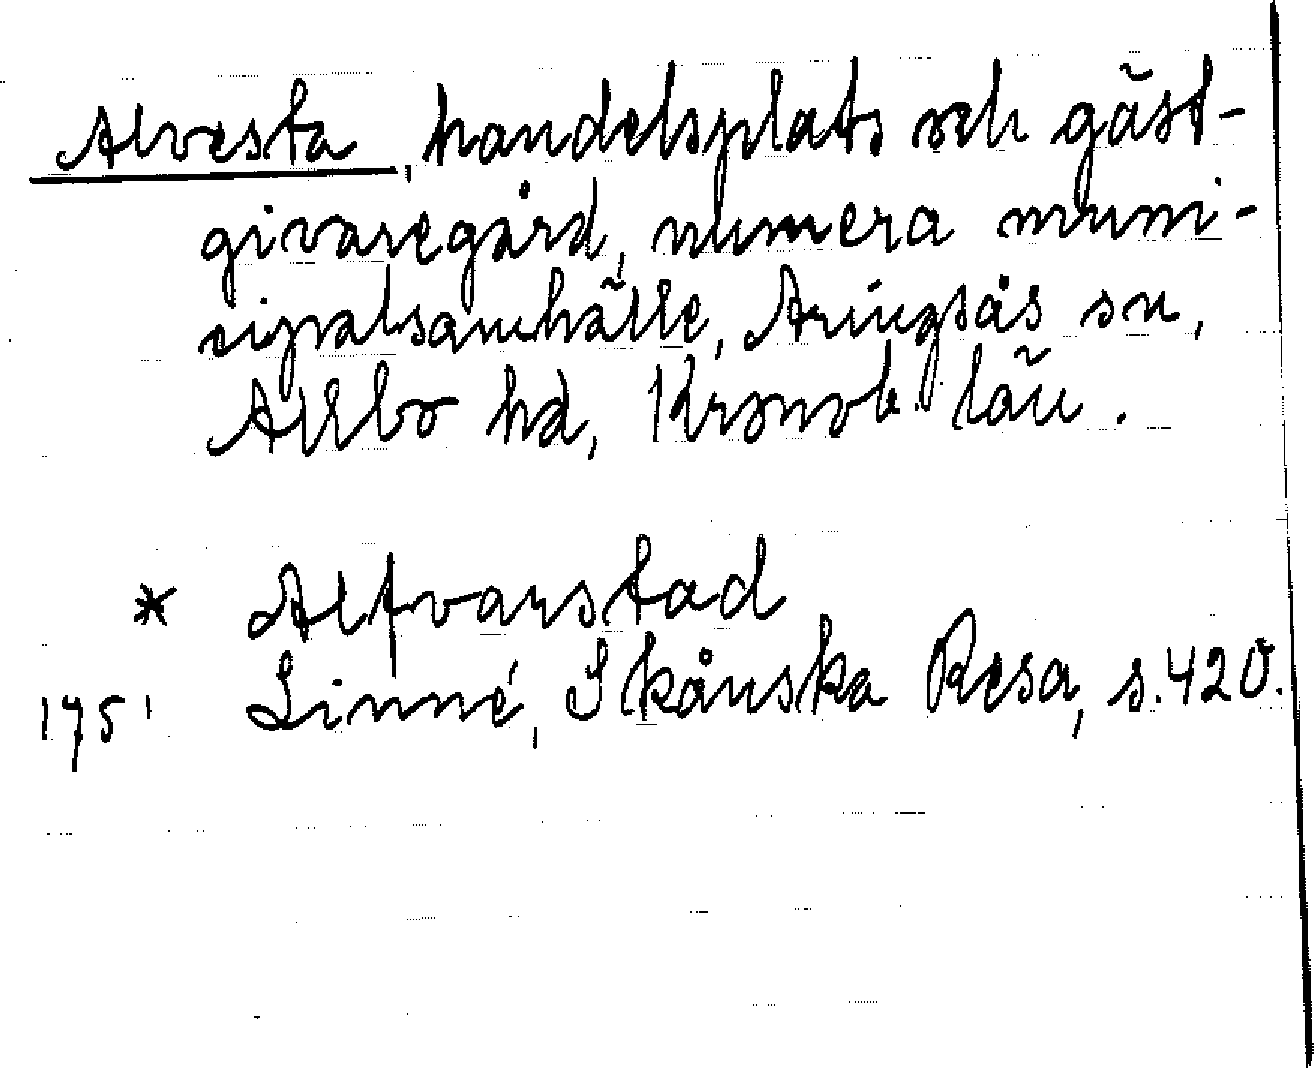 Alvesta, handelsplats och gäst-
givaregård, numera muni-
cipalsamhälle, Aringsås sn,
Allbo hd, Kronob. län.
* Alfvarstad
1751 Linné, Skånska Resa, s. 420.